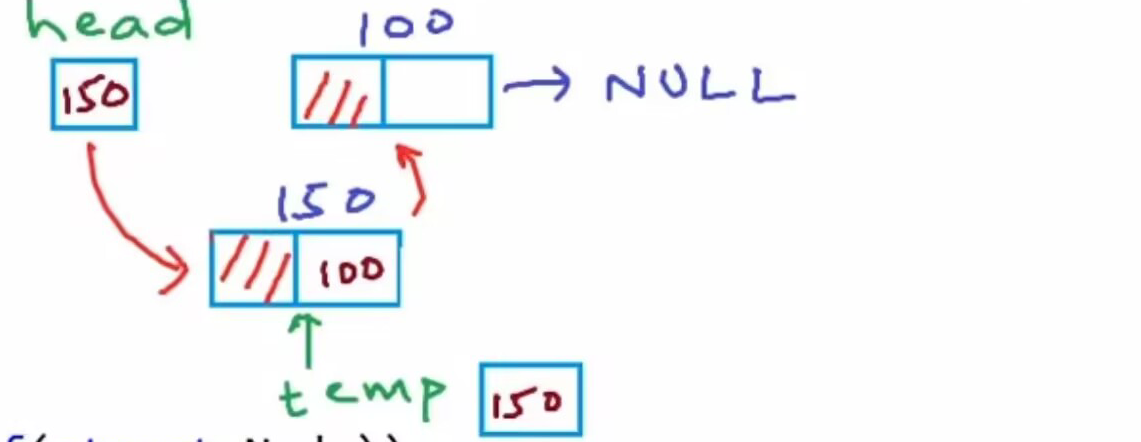 head
100
150
NULL
150
100
temp
150